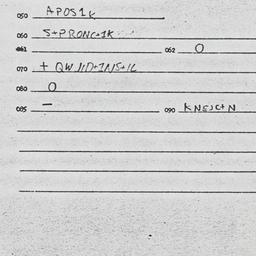 050 APOS1K
060 S+PRONC+1K
061 062 O
070 + QWND+INS+1L
080 O
085 — 090 KNEJC+N